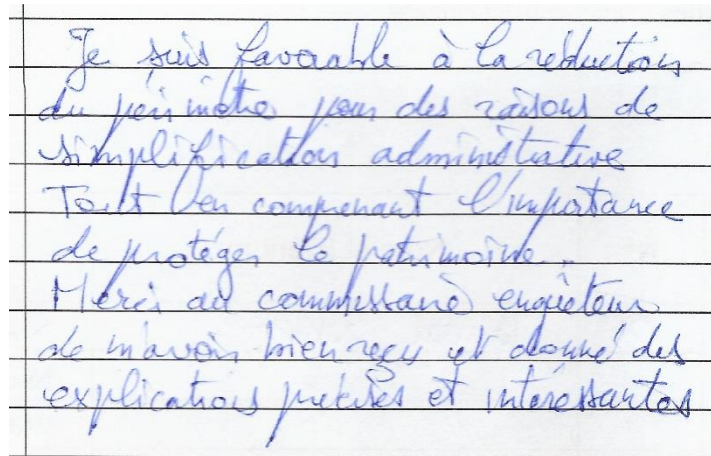 Je suis favorable à la réduction
du périmètre pour des raisons de
simplification administrative
Tout en comprenant l'importance
de protéger le patrimoine.
Merci au commissaire enquêteur
de m'avoir bien reçu et donné des
explications précises et intéressantes